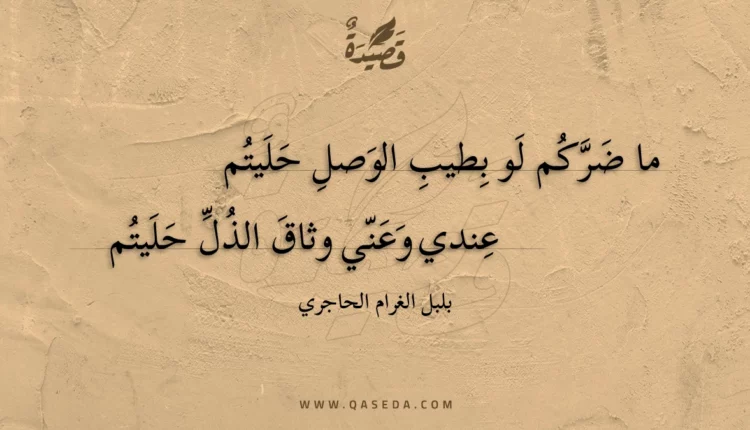 قَصِيدَةٌ
ما ضَرَّكُم لَو بِطيبِ الوَصلِ حَلَيتُم
عِندي وَعَنّي وثاقَ الذُلِّ حَلَيتُم
بلبل الغرام الحاجري
WWW.QASEDA.COM